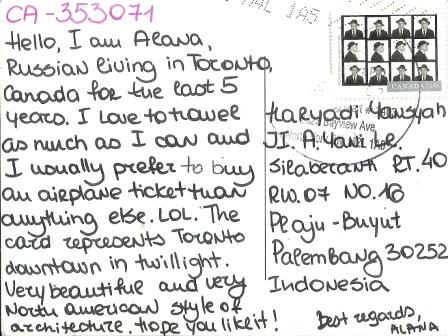 CA-353071
Hello, I am Alana,
Russian living in Toronto,
Canada for the last 5
years. I love to travel
as much as I can and
I usually prefer to buy
an airplane ticket than
anything else. LOL. The
card represents Toronto
downtown in twillight.
Very beautiful and very
North american style of
architecture. Hope you like it!
1A5
CANADA
Bayview Ave
Haryadi Yansyah
JI. A. Yani
Silaberanti RT. 40
RW. 07 NO. 16
Plaju - Buyut
Palembang 30252
Indonesia
best regards,
ALANA